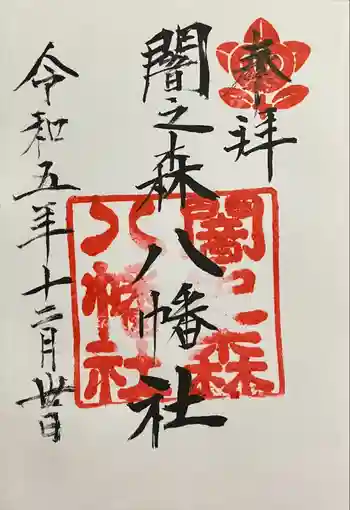 奉拝
闇之森八幡社
令和五年十二月廿日
闇之森
八幡社